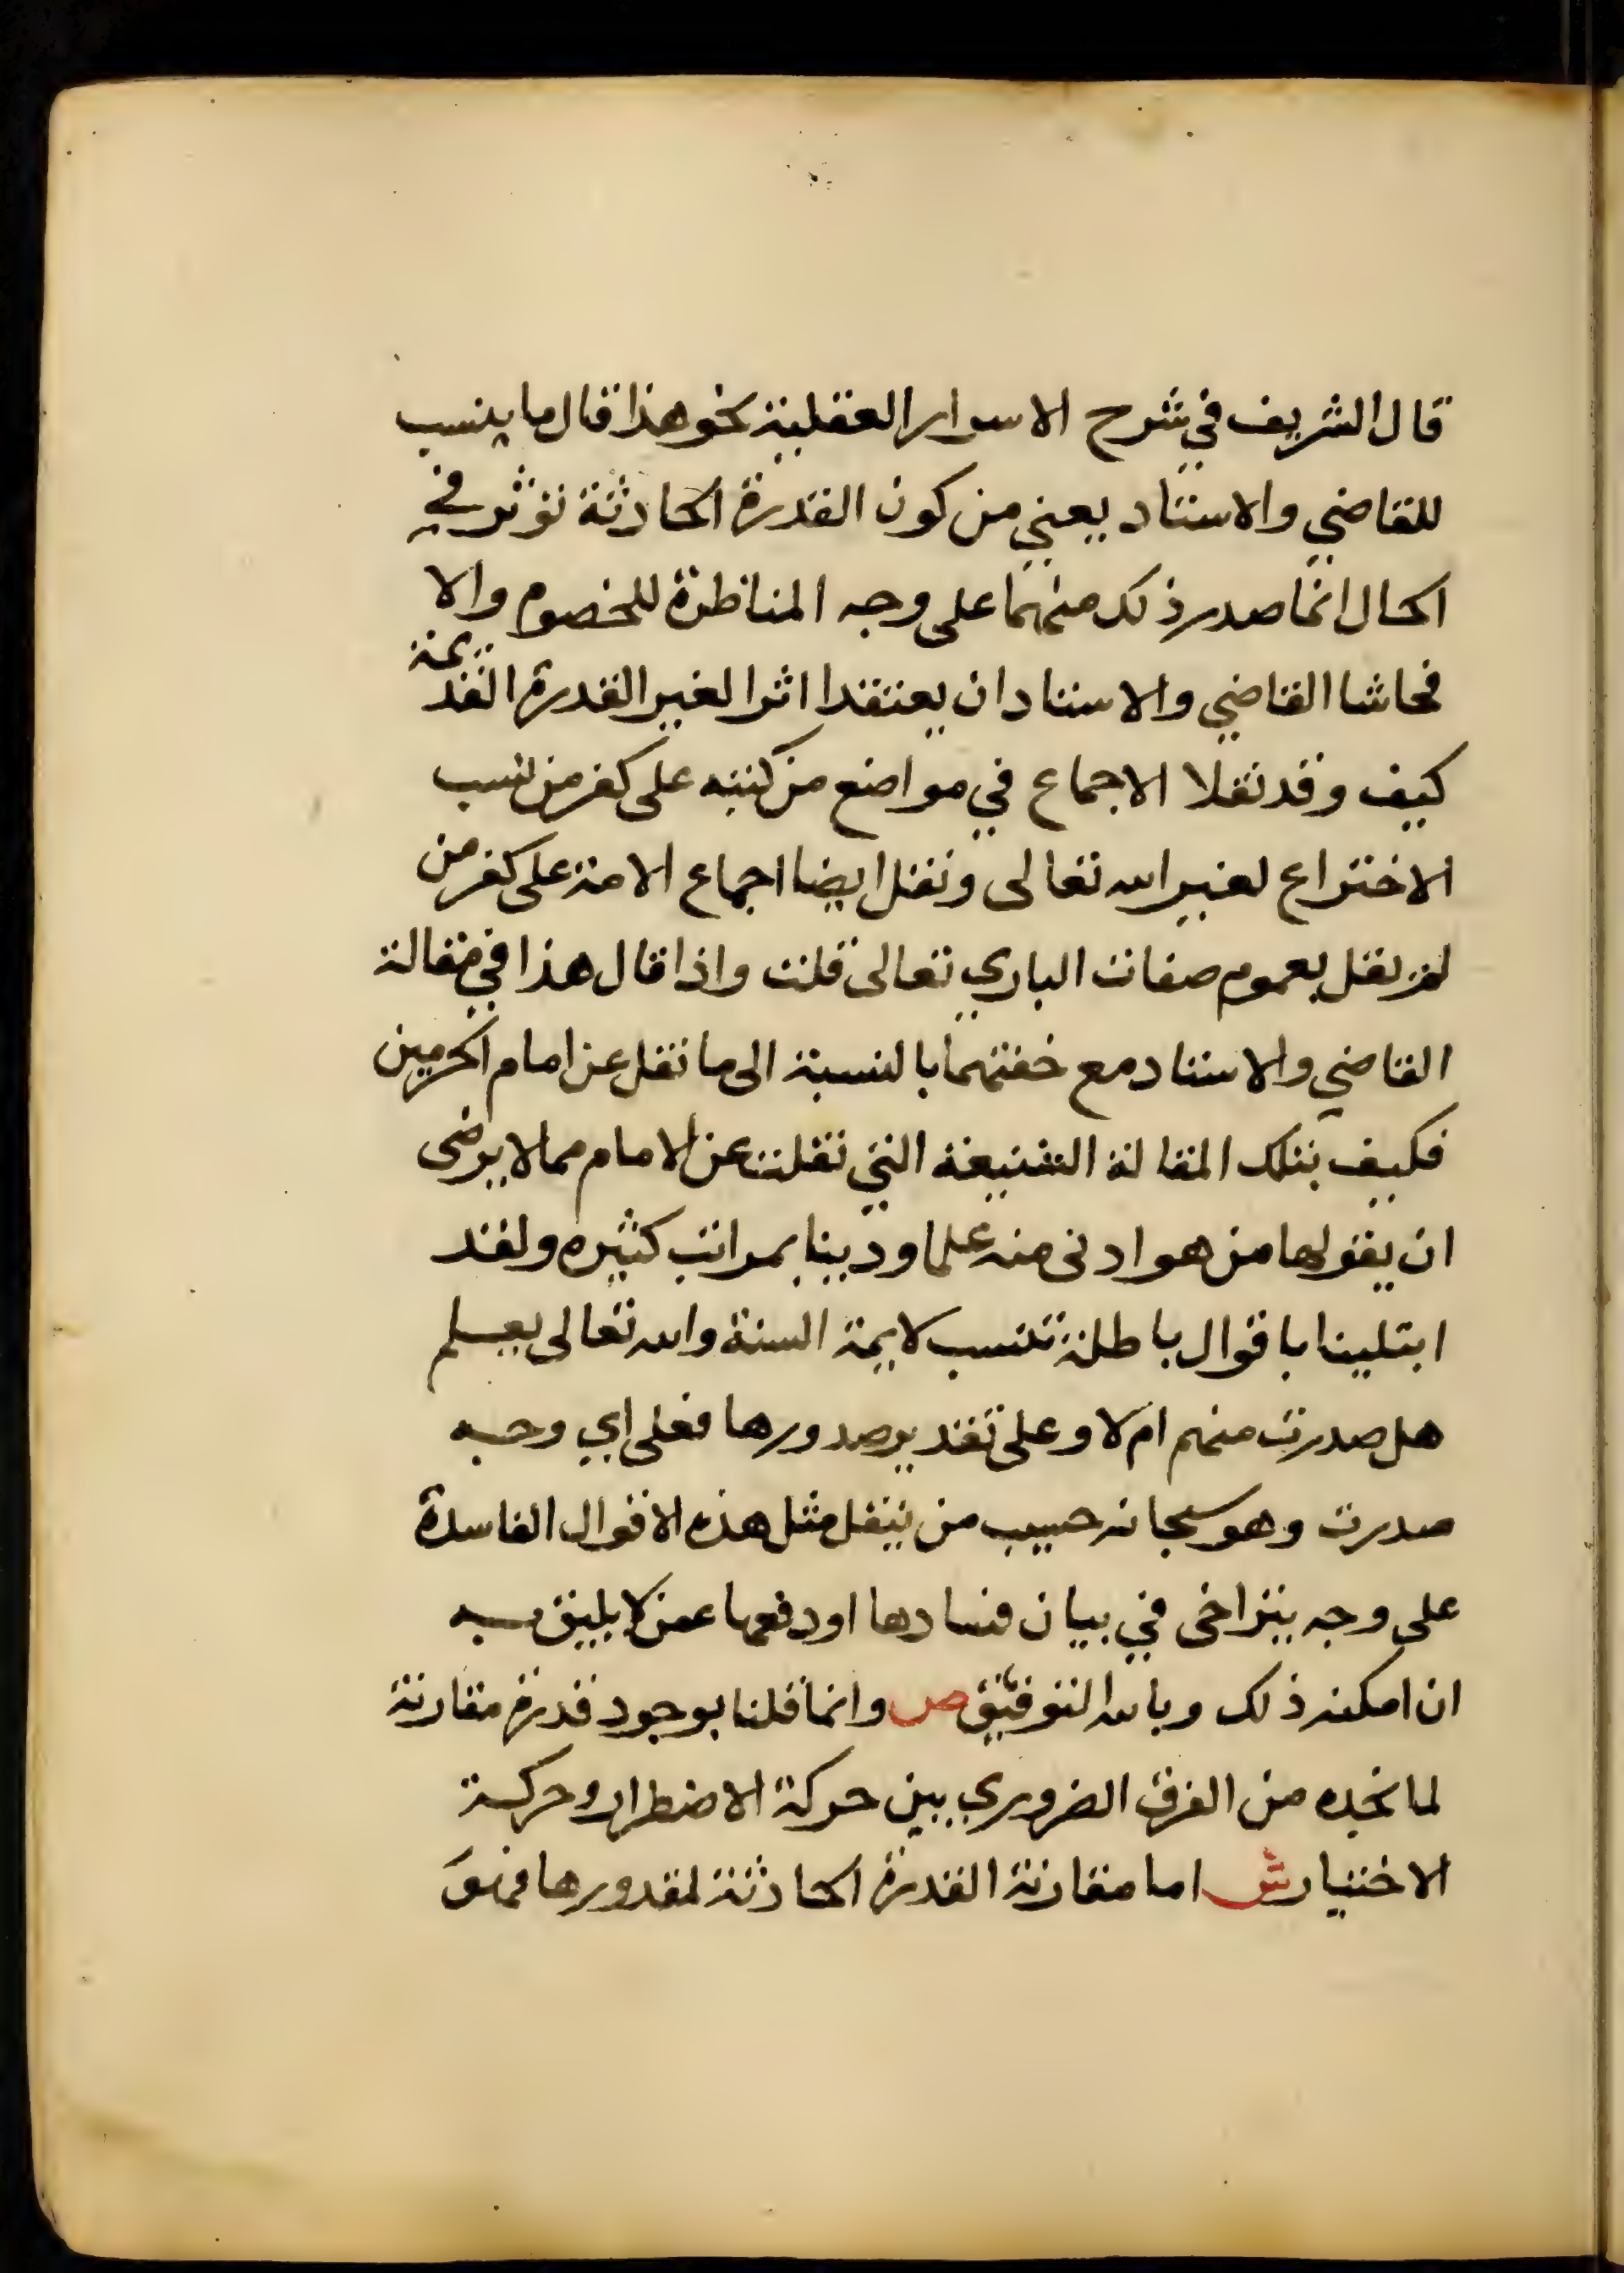 قال الشريف في شرح الاسرار العقلية نحو هذا قال ما ينسب
للقاضي والاستاد يعني من كون القدرة الحادثة تؤثر في
الحال انما صدر ذلك منهما على وجه المناظرة للخصوم والا
فحاشا القاضي والاستاد ان يعتقدا اثرا لغير القدرة القديمة
كيف وقد نقلا الاجماع في مواضع من كتبه على كفر من نسب
الاختراع لغير الله تعالى ونقل ايضا اجماع الامة على كفر من
لم يقل بعموم صفات الباري تعالى قلت واذا قال هذا في مقالة
القاضي والاستاد مع خفتهما بالنسبة الى ما نقل عن امام الحرمين
فكيف بتلك المقالة الشنيعة التي نقلت عن الامام مما لا يرضى
ان يقولها من هو ادنى منه علما ودينا بمراتب كثيره ولقد
ابتلينا باقوال باطلة تنسب لايمة السنة والله تعالى يعلم
هل صدرت منهم ام لا وعلى تقدير صدورها فعلى اي وجه
صدرت وهو سبحانه حسيب من ينقل مثل هذه الاقوال الفاسدة
على وجه يتراخى في بيان فسادها او دفعها عمن لا يليق به
ان امكنه ذلك وبالله التوفيق ص وانما قلنا بوجود قدرة مقارنة
لما نجده من الفرق الضروري بين حركة الاضطرار وحركة
الاختيار ش اما مقارنة القدرة الحادثة لمقدورها فهو